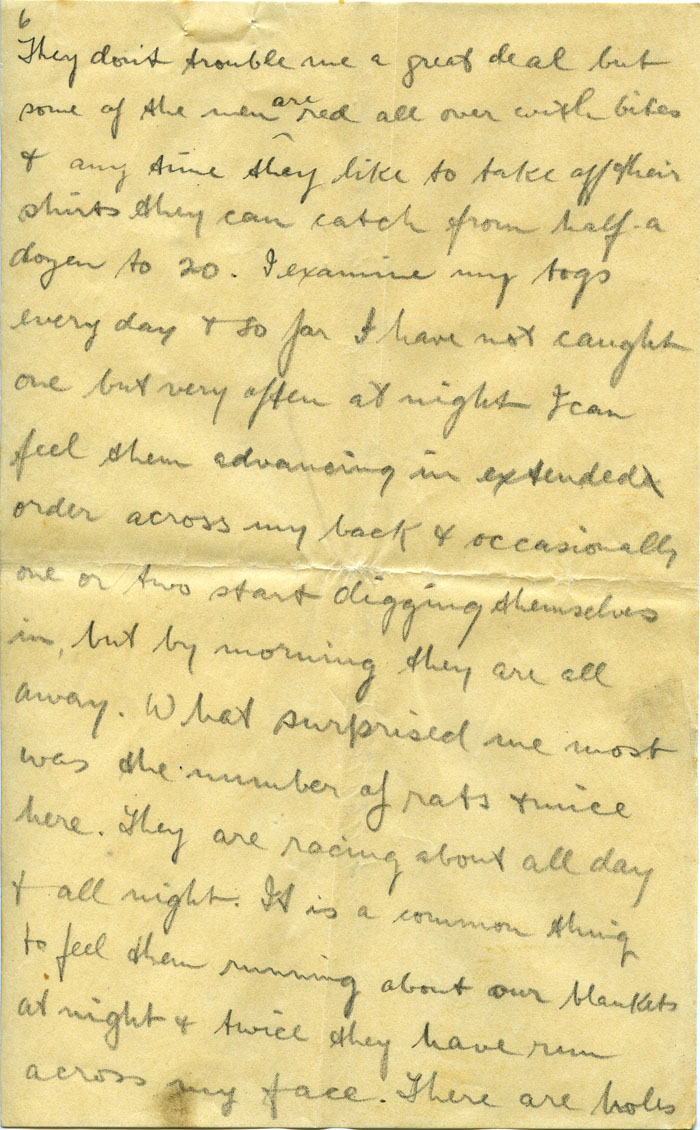 6
They don't trouble me a great deal but
some of the men are red all over with bites
& any time they like to take off their
shirts they can catch from half-a
dozen to 20. I examine my togs
every day & so far I have not caught
one but very often at night I can
feel them advancing in extended
order across my back & occasionally
one or two start digging themselves
in, but by morning they are all
away. What surprised me most
was the number of rats & mice
here. They are racing about all day
& all night. It is a common thing
to feel them running about our blankets
at night & twice they have run
across my face. There are holes